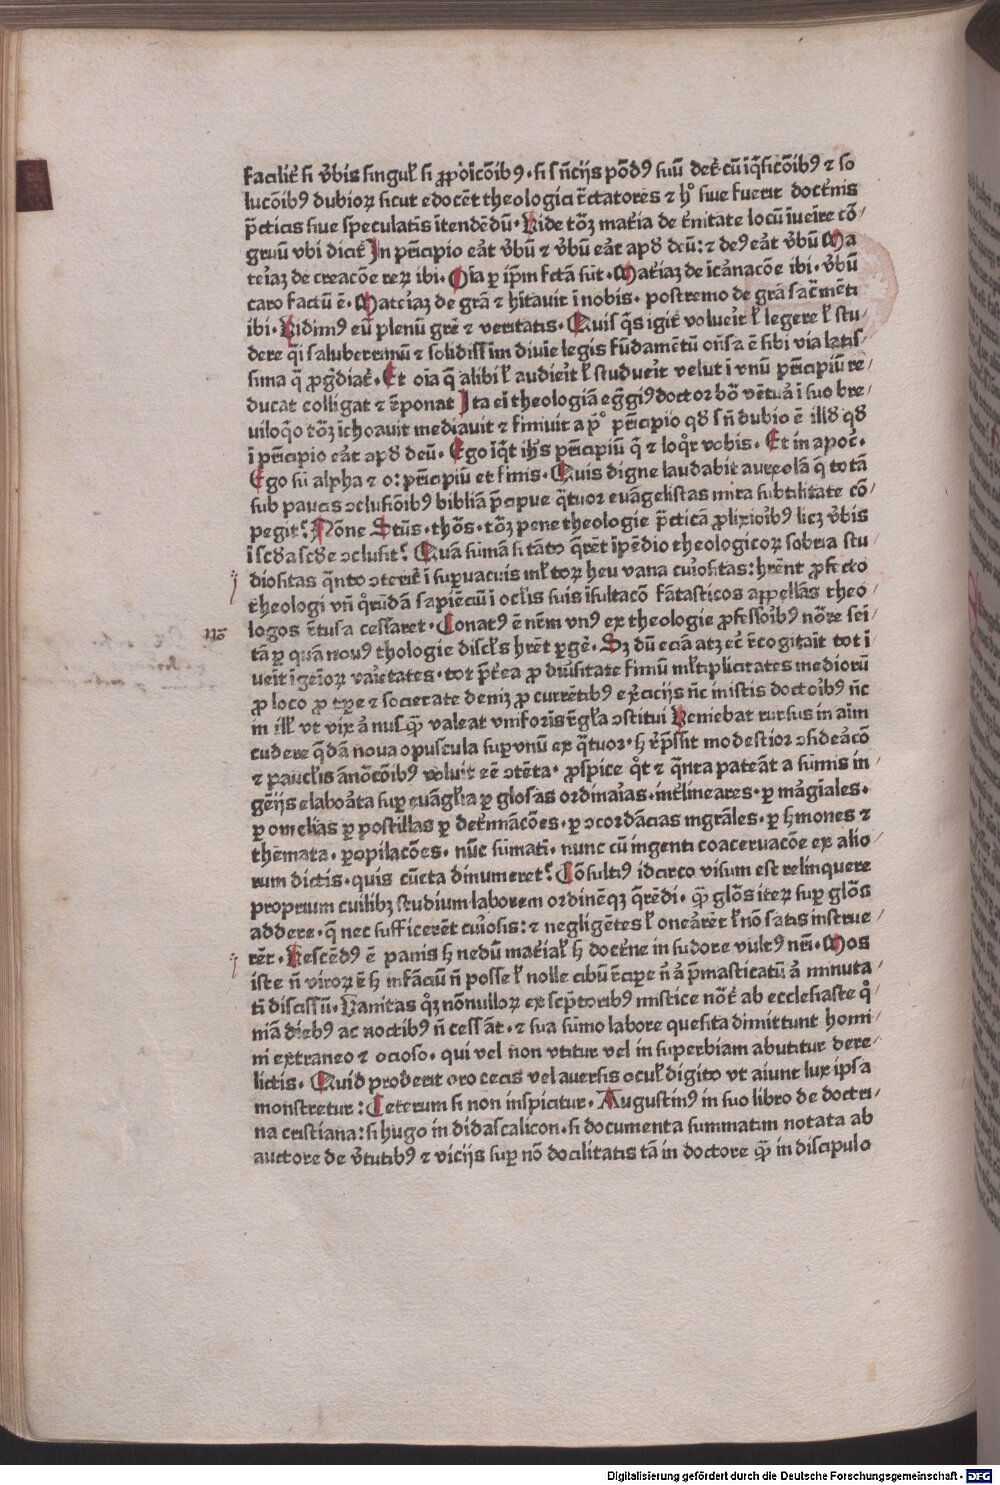 facilit̛ si v̛bis singul̛ si p̲poic̄oīb9 · si sn̄cijs pōd9 suū det̛ cū īq̄sicōīb9 ⁊ so
lucōīb9 dubioꝝ sicut edocēt theologici tc̄tatores ⁊ h° siue fuerit doct̛nis
p̄cticis siue speculatīs ītendēdū · Vide tōꝫ mat̛ia de t̛nitate locū īueīre cō/
gruū vbi dicit̛ In prīcipio eāt v̛bū ⁊ v̛bū eāt apd̛ deū: ⁊ de9 eāt v̛bū Ma
teiaꝫ de creacōe reꝝ ibi · Oīa ꝑ ip̄m fctā sūt · Mat̛iaꝫ de īcānacōe ibi · v̛bū
caro factū ē · Mateiaꝫ de grā ⁊ hītauit ī nobis · postremo de grā sac̄mēti
ibi · Vidim9 eū plenū grē ⁊ veritatis · Quis q̄s igit̛ volueit̛ l̛ legere l̛ stu/
dere q̄i saluberrimū ⁊ solidissim diuīe legis fūdamētū on̄sa ē sibi via latis/
sima q̄ p̲g̛diat̛ · Et oīa q̄ alibi l̛ audieit̛ l̛ studueit̛ velut ī vnū prīcipiū re/
ducat colligat ⁊ rēponat Ita eī theologiā eḡgi9 doctor bō vētuā ī suo bre/
uiloq̄o tōꝫ īchoauit mediauit ⁊ finiuit a p° prīcipio qd̛ sn̄ dubio ē illd̛ qd̛
ī prīcipio eāt apd̛ deū · Ego īq̄t ih̄s prīcipiū q̄ ⁊ loq̄r vobis · Et in apoc̄ ·
Ego sū alpha ⁊ o: prīcipiū et finis · Quis digne laudabit aureolā q̄ totā
sub paucis ɔclusiōīb9 bibliā p̄cipue q̄tuor euāgelistas mira subtilitate cō/
pegit? Nōne Stūs · thōs · tōꝫ pene theologie p̄cticā p̲lixioīb9 licꝫ v̛bis
ī scd̛a scd̛e ɔclusit? Quā sūmā si tāto q̄rēt īpēdio theologicoꝝ sobria stu/
diositas q̄nto ɔterit̛ ī suꝑuacuis ml̛toꝝ heu vana cuiositas: hrēnt p̲fecto
theologi vn̄ q̄rūdā sapiēciū ī oclīs suis īsultacō fātasticos appellās theo/
logos rētusa cessaret · Conat9 ē nēm vn9 ex theologie p̲fessoīb9 nōre sei/
tā ꝑ quā nou9 thologie discl̄s hrēt ꝑgē · Sꝫ dū eciā atꝫ ec̄ rēcogitait tot ī
ueit̛ īgeīoꝝ vaietates · tot p̄t̛ea p̲ diuīsitate finiū ml̛tiplicitates medioꝝ
p̲ loco p̲ tꝑe ⁊ societate deniꝫ p̲ currētib9 exc̄icijs n̄c mistis doctoīb9 n̄c
in ill̛ vt vix ā nusq̄ꝫ valeat vniforīs rēgl̄a ɔstitui Veniebat rursus in aīm
cudere q̄dā noua opuscula suꝑ vnū ex q̄tuor · ꜧ rēp̄ssit modestior ɔsideācō
⁊ pauclīs ānōt̛cōīb9 voluit eē ɔtēta · p̲spice q̄t ⁊ q̄nta pateāt a sūmis in/
gēijs elaboāta suꝑ euāgl̄ia ꝑ glosas ordinaias · int̛lineares · ꝑ māgiales ·
ꝑ omelias ꝑ postillas ꝑ det̛mnācōes · ꝑ ɔcordācias migrāles · ꝑ ꜧmones ⁊
thēmata · ꝑ ɔpilacōes · nūc sūmati · nunc cū ingenti coaceruacōe ex alio/
rum dictis · quis cūcta dinumeret? Cōsulti9 idcirco visum est relinquere
proprium cuilibꝫ studium laborem ordinēqꝫ q̄rēdi · q̄ꝫ glōs iteꝝ suꝑ glōs
addere · q̄ nec sufficerēt cuiosis: ⁊ negligētes l̛ onearēt l̛ nō satis instrue/
rēt · Vescēd9 ē panis ꜧ nedū mat̛ial̛ ꜧ doct̛ne in sudore vult9 nr̄i · Mos
iste n̄ viroꝝ ē ꜧ infāciū n̄ posse l̛ nolle cibū rēcipe n̄ ā p̄masticatū ā minuta/
ti discissū · Vanitas q̄ꝫ nōnulloꝝ ex scp̄torib9 mistice nōt̛ ab ecclesiaste q̄/
niā dieb9 ac noctib9 n̄ cessāt · ⁊ sua sūmo labore quesita dimittunt homi/
ni extraneo ⁊ ocioso · qui vel non vtitur vel in superbiam abutitur dere/
lictis · Quid proderit oro cecis vel auersis ocul̛ digito vt aiunt lux ipsa
monstretur: Ceterum si non inspicitur · Augustin9 in suo libro de doctri/
na cristiana: si hugo in didascalicon · si documenta summatim notata ab
auctore de v̛tutib9 ⁊ vicijs suꝑ nō docilitatis tā in doctore q̄ꝫ in discipulo
Digitalisierung gefördert durch die Deutsche Forschungsgemeinschaft - DFG